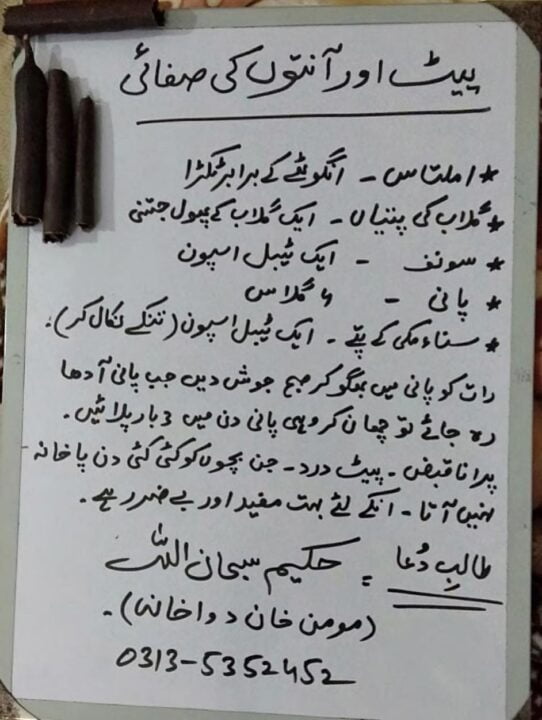 پیٹ اور آنتوں کی صفائی
* املتاس - انگوٹھے کے برابر ٹکڑا
* گلاب کی پتیاں - ایک گلاب کے پھول جتنی
* سونف - ایک ٹیبل اسپون
* پانی - 4 گلاس
* سناء مکی کے پتے - ایک ٹیبل اسپون (تنکے نکال کر).
رات کو پانی میں بھگو کر صبح جوش دیں جب پانی آدھا
رہ جائے تو چھان کر وہی پانی دن میں 3 بار پلائیں۔
پرانا قبض - پیٹ درد - جن بچوں کو کئی کئی دن پاخانہ
نہیں آتا - انکے لئے بہت مفید اور بے ضرر ہے۔
طالبِ دُعا = حکیم سبحان اللہ
(مومن خان دواخانہ)۔
0313-5352452